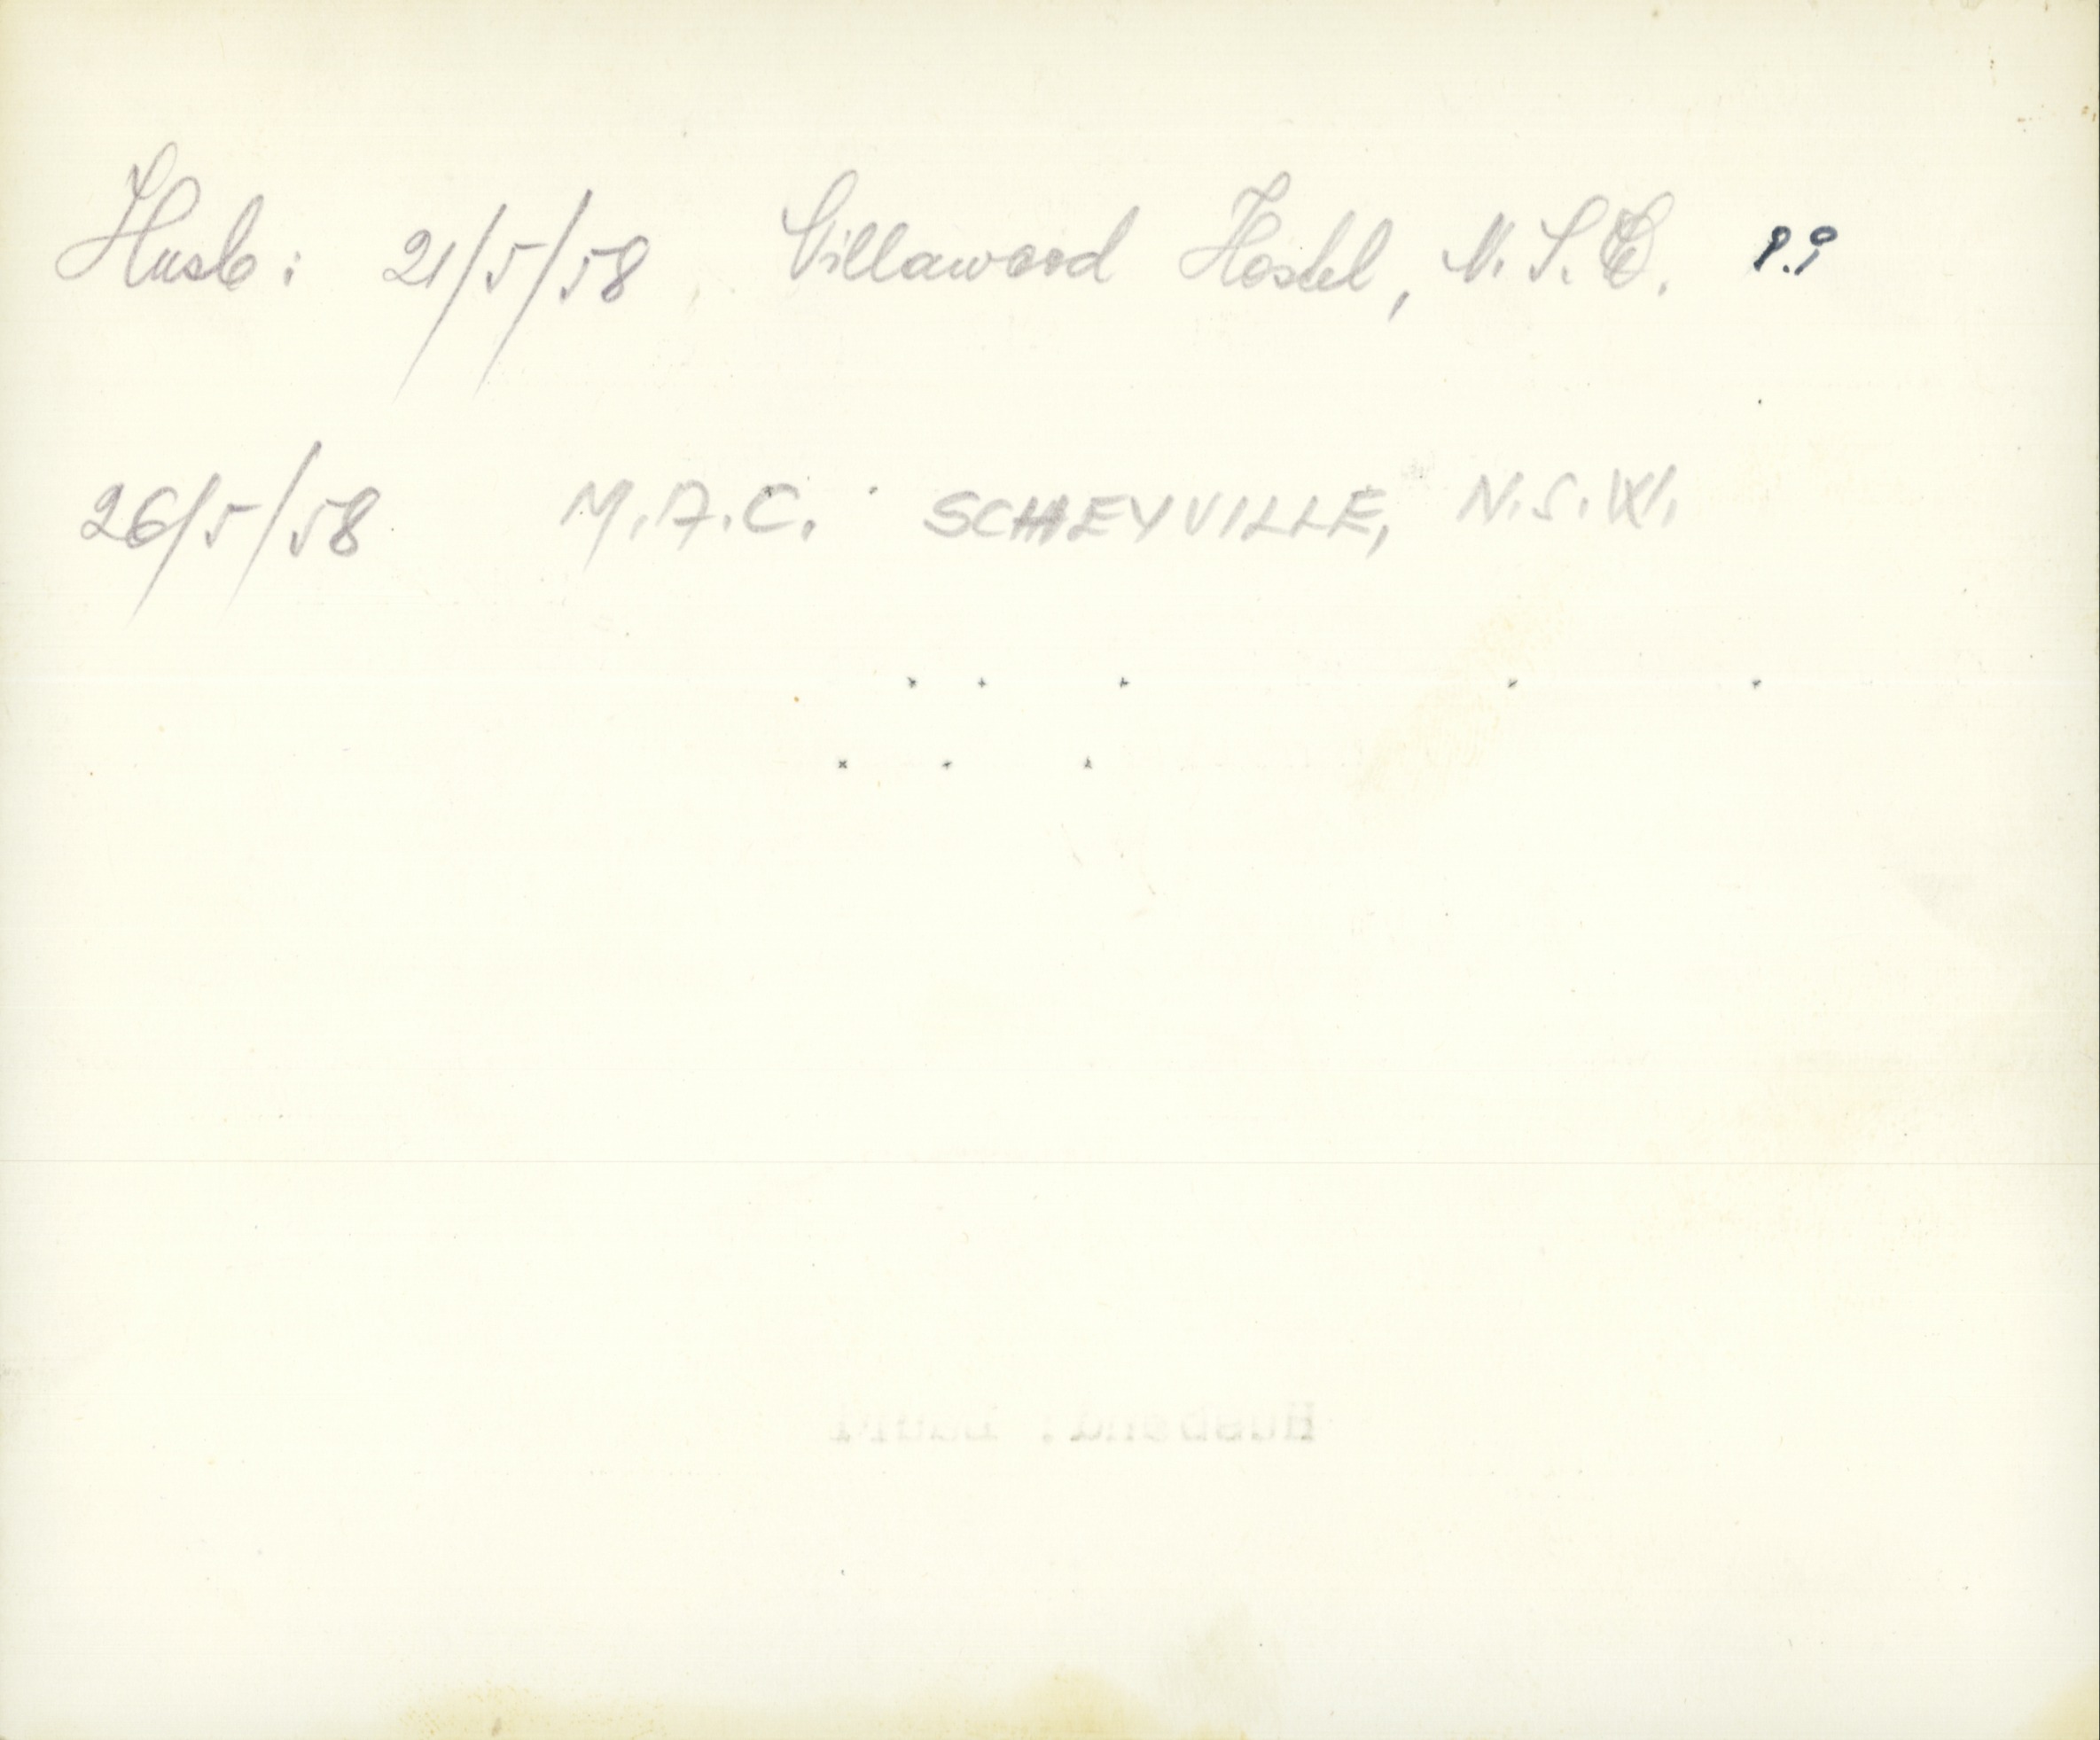 Husb: 21/5/58 Villawood Hostel, N.S.W. P.P
26/5/58 M.A.C. SCHEYVILLE, N.S.W.
Husband: Lauri